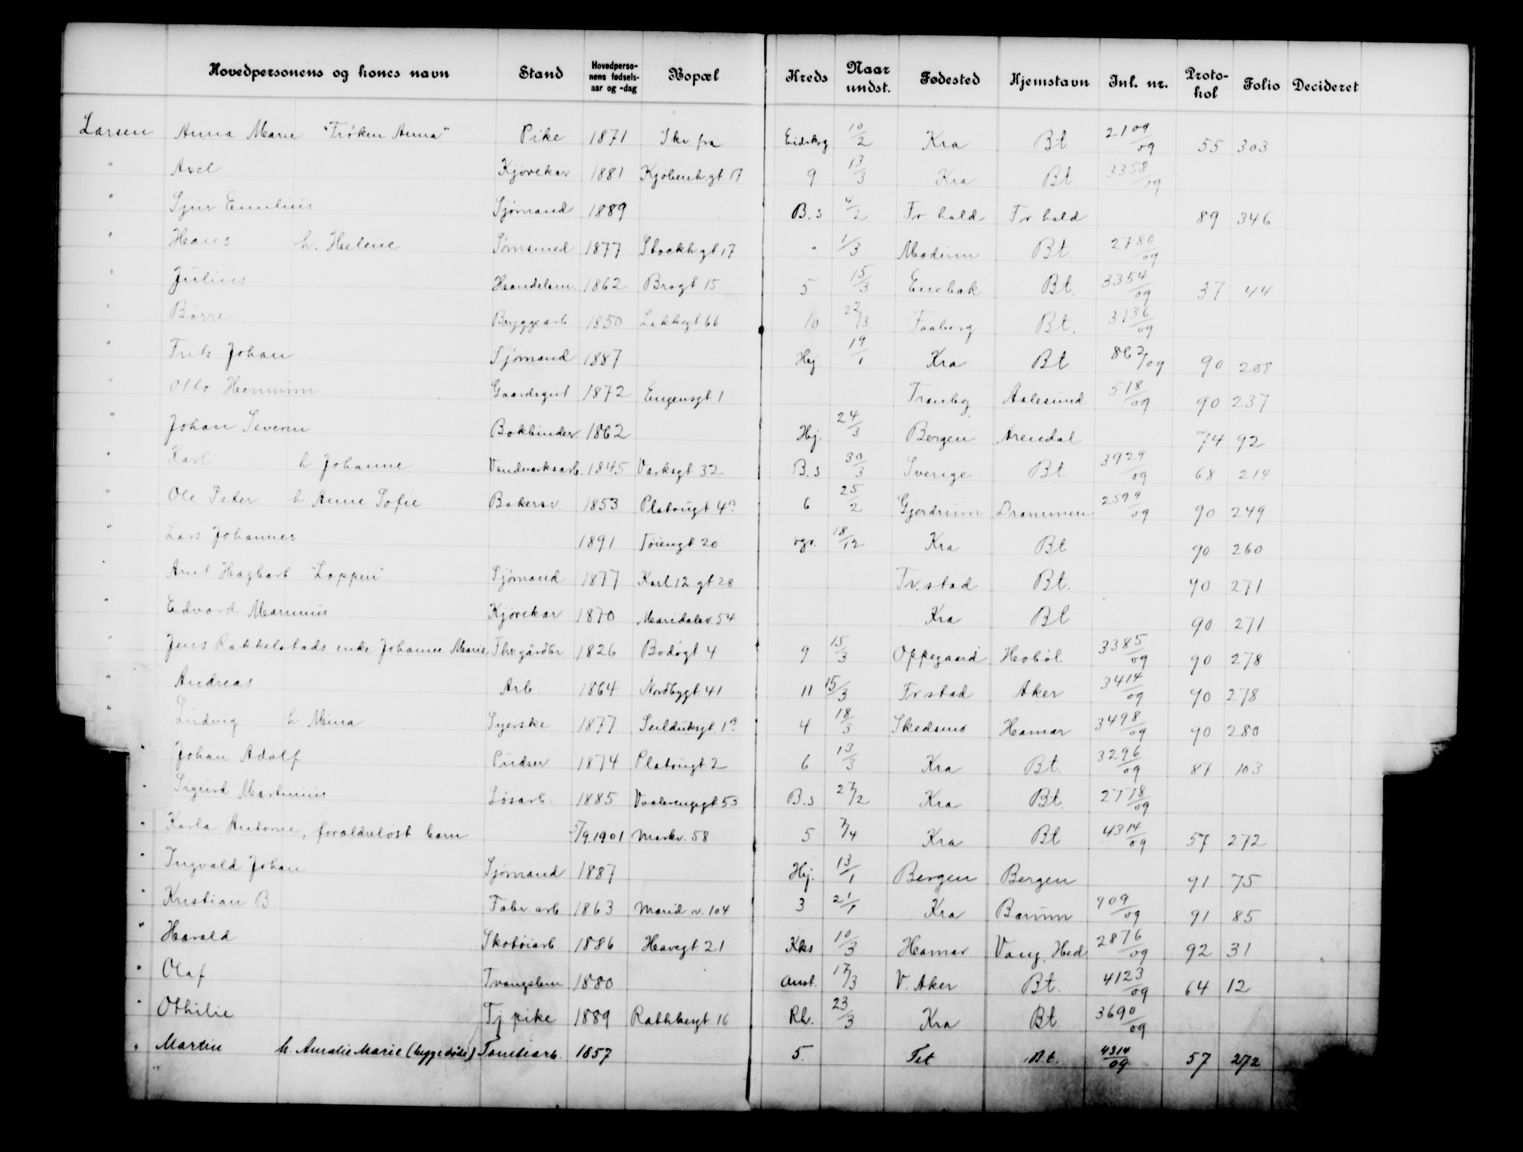 Hovedpersonens og kones navn Stand Hovedpersonens fødselsaar og -dag Bopæl Kreds Naar undst. Fødested Hjemstavn Inl. nr. Protokol Folio Decideret
Larsen Anna Marie "Frøken Anna" Pike 1871 Skr fra Eidskog 10/2 Kra Bt 2109/09 55 303
" Axel Kjørekar 1881 Kjøbenh.gt 17 9 13/3 Kra Bt 3358/09
" Emilius Sjømand 1889 B.s 4/2 Fr.hald Fr hald 89 346
" Hans h. Helene 1877 Stockh gt 17 " 1/3 Modum Bt. 2780/09
" Julius Handelsm. 1862 Brogt 15 5 15/3 Enebak Bt. 3354/09 37 44
" Børre Bryggearb 1850 Lakkegt 66 10 22/3 Faaberg Bt. 3736/09
" Frits Johan Sjømand 1887 Hej 19/1 Kra Bt. 862/09 90 208
" Otto Hennum Gaardsgut 1872 Eugensgt 1 Tranby Aalesund 518/09 90 237
" Johan Severin Bokbinder 1862 Hej. 24/3 Bergen Arendal 74 92
" Karl h Johanne Vandverksarb. 1845 Verksgt 32 B.s 30/3 Sverige Bt 3929/09 68 214
" Ole Peder h Anne Sofie Bakersv. 1853 Platougt 4 6 25/2 Gjerdrum Drammen 2599/09 90 249
" Lars Johannes 1891 Tøiengt 20 vgr. 18/12 Kra Bt 90 260
" Arnt Hagbart "Loppen" Sjømand 1877 Karl 12 gt 28 Fr.stad Bt. 90 271
" Edvard Marinius Kjørekar 1870 Maridalsv. 54 Kra Bt 90 271
" Jens Rakkelstads enke Johanne Marie Fhv gårdbr 1826 Bodøgt 4 9 15/3 Oppegaard Hobøl 3385/09 90 278
" Andreas Arb. 1864 Nordbygt 41 11 15/3 Fr.stad Aker 3414/09 90 278
" Ludvig h. Mina Syerske 1877 Seilduksgt. 1 4 18/3 Skedsmo Hamar 3498/09 90 280
" Johan Adolf Pudser 1874 Platougt 2 6 13/3 Kra Bt. 3296/09 87 103
" Sigurd Martinius Løsarb. 1885 Vaalerenggt 53 B.s 27/2 Kra Bt. 2778/09
" Karla Antonie, forældreløst barn 5/9.1901 Markv. 58 5 7/4 Kra Bt 4314/09 57 272
" Ingvald Johan Sjømand 1887 Hej. 13/1 Bergen Bergen 91 75
" Kristian B Fabr. arb 1863 Marid v. 104 3 21/1 Kra Bærum 909/09 91 85
" Harald Skotøiarb 1886 Havegt 21 Kks 10/3 Hamar Vang, Hed 2876/09 92 31
" Olaf Tvangslem 1880 Anst. 17/3 V. Aker Bt. 4123/09 64 12
" Othilie Tj pike 1889 Rathkesgt 16 Rh. 23/3 Kra Bt 3690/09
" Martin h. Amalie Marie (begge døde) Tomtearb. 1857 5. Fet Bt. 4314/09 57 272